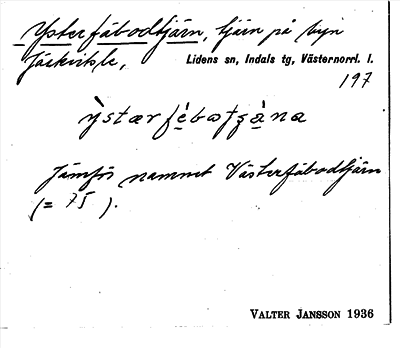 Ysterfäbodtjärn, tjärn på byn
Järkvitsle, Lidens sn, Indals tg, Västernorrl. l.
197
ỳstærfè̀bωtʂà̀na
Jämför namnet Västerfäbodtjärn
(= 75).
VALTER JANSSON 1936